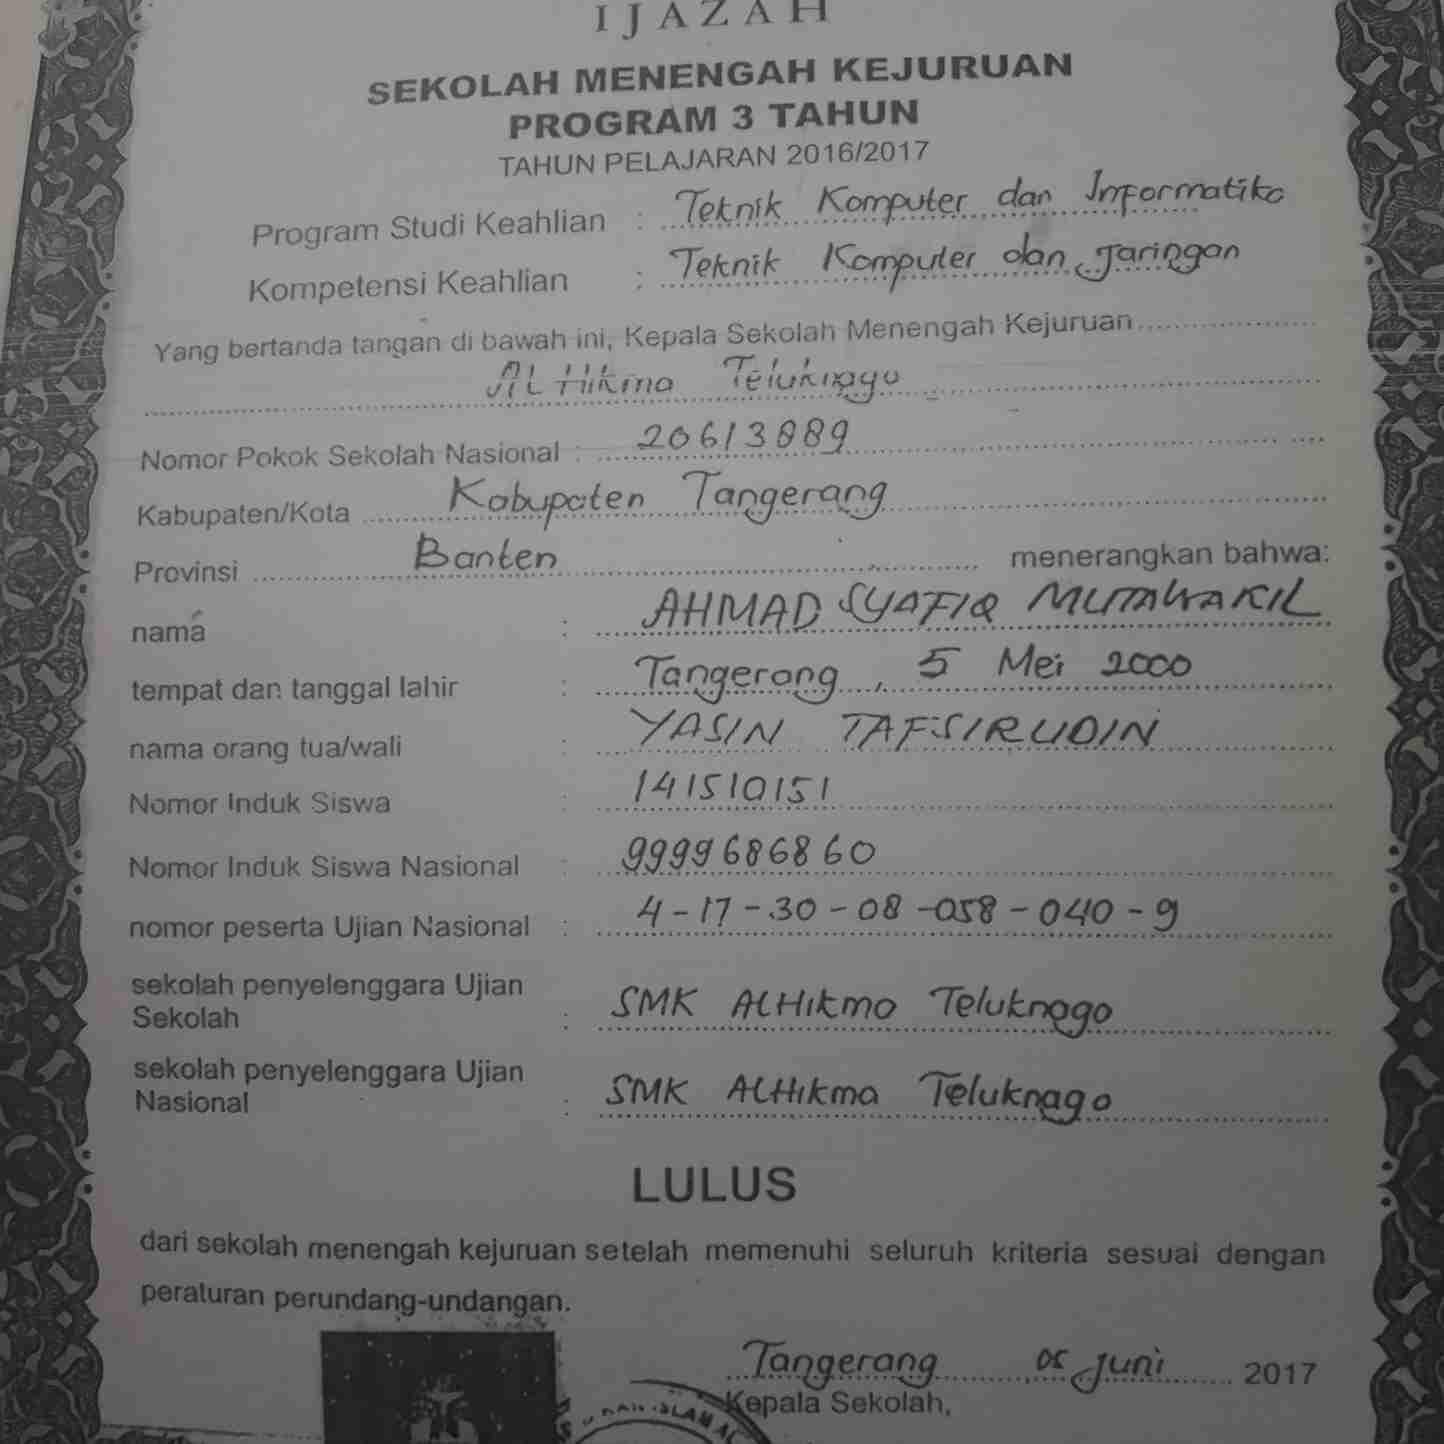 IJAZAH
SEKOLAH MENENGAH KEJURUAN
PROGRAM 3 TAHUN
TAHUN PELAJARAN 2016/2017
Program Studi Keahlian : Teknik Komputer dan Informatika
Kompetensi Keahlian : Teknik Komputer dan Jaringan
Yang bertanda tangan di bawah ini, Kepala Sekolah Menengah Kejuruan
Al Hikma Teluknaga
Nomor Pokok Sekolah Nasional : 20613889
Kabupaten/Kota Kabupaten Tangerang
Provinsi Banten menerangkan bahwa:
nama : AHMAD SYAFIQ MUTAWAKIL
tempat dan tanggal lahir : Tangerang, 5 Mei 2000
nama orang tua/wali : YASIN TAFSIRUDIN
Nomor Induk Siswa : 141510151
Nomor Induk Siswa Nasional : 9999686860
nomor peserta Ujian Nasional : 4-17-30-08-058-040-9
sekolah penyelenggara Ujian
Sekolah : SMK ALHikma Teluknaga
sekolah penyelenggara Ujian
Nasional : SMK ALHikma Teluknaga
LULUS
dari sekolah menengah kejuruan setelah memenuhi seluruh kriteria sesuai dengan
peraturan perundang-undangan.
Tangerang 05 Juni 2017
Kepala Sekolah,
ISLAM AL